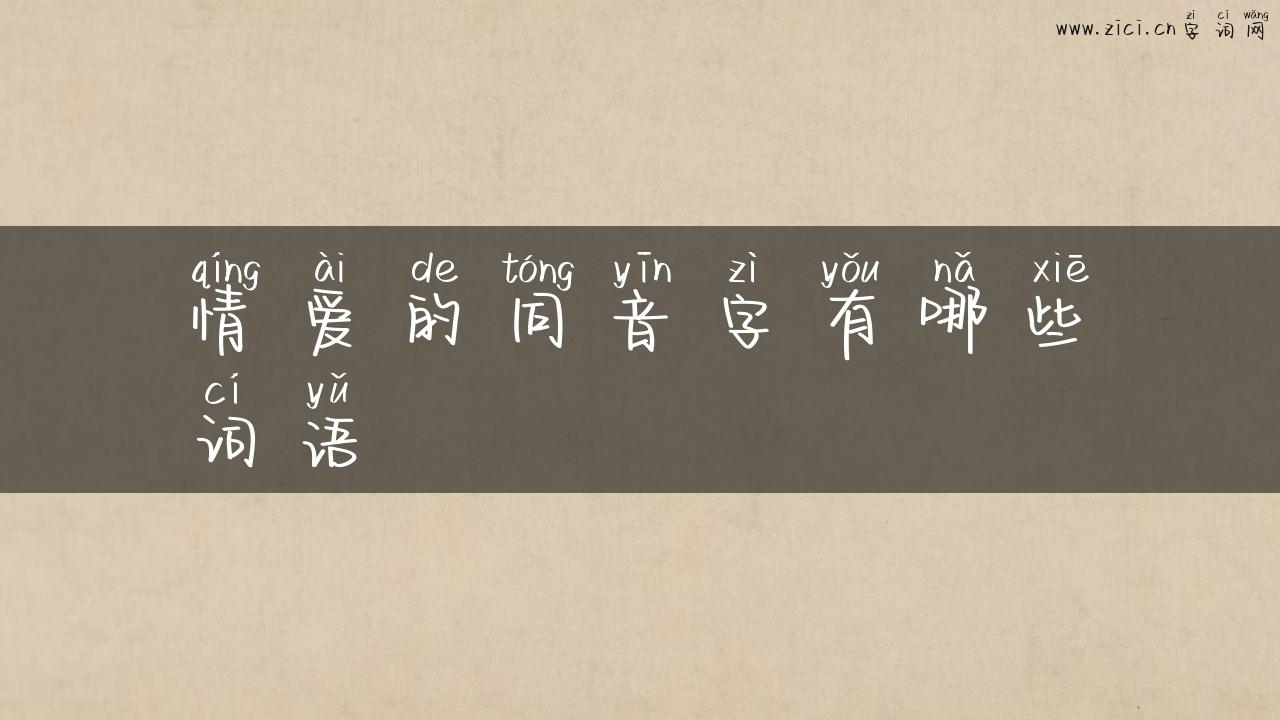 zì cí wǎng
www.zici.cn字词网
qíng ài de tóng yīn zì yǒu nǎ xiē
情爱的同音字有哪些
cí yǔ
词语